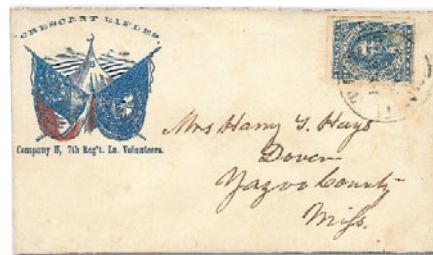 CRESCENT RIFLES
Company H, 7th Reg't. La. Volunteers.
Mrs Harry T. Hays
Dover
Yazoo County
Miss.